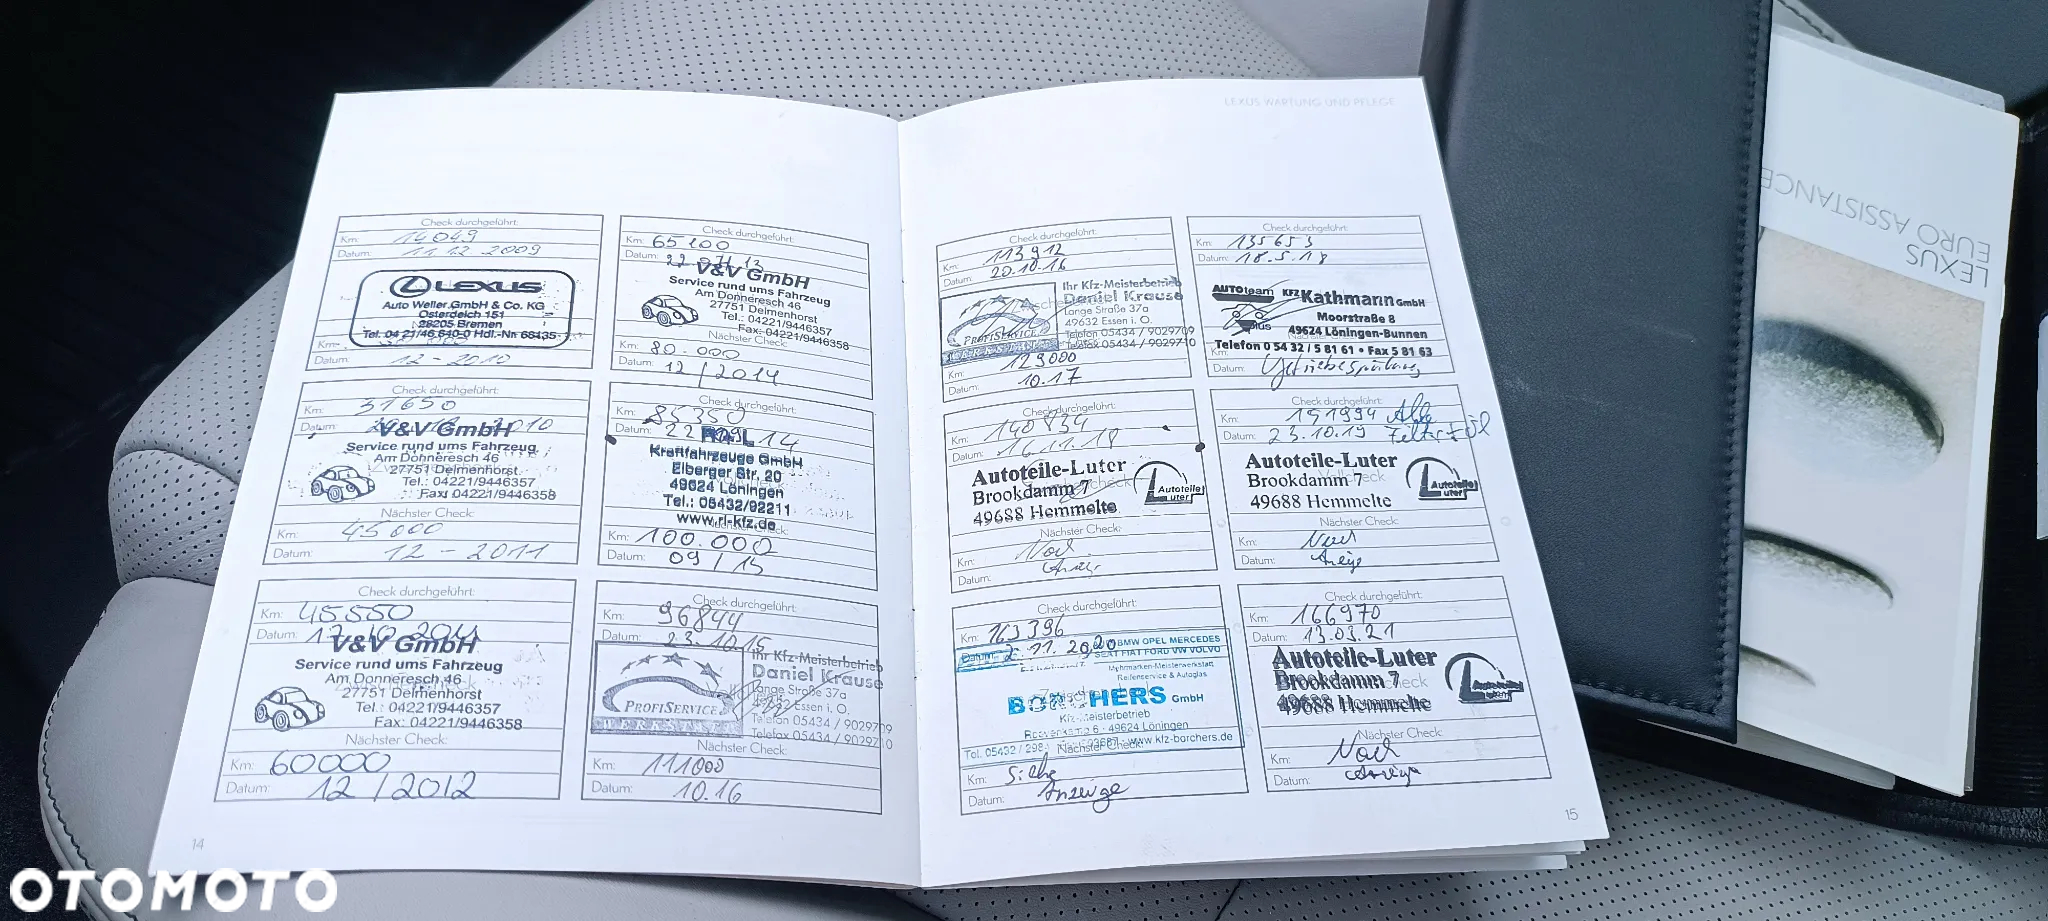 LEXUS WARTUNG UND PFLEGE
Check durchgeführt:
Km: 14049
Datum: 11.12.2009
LEXUS
Auto Weller GmbH & Co. KG
Osterdeich 151
28205 Bremen
Tel. 04 21/46 640-0 Hdl.-Nr. 68435
Km:
Datum: 12-2010
Check durchgeführt:
Km: 31650
Datum: 2010
V&V GmbH
Service rund ums Fahrzeug
Am Donneresch 46
27751 Delmenhorst
Tel.: 04221/9446357
Fax: 04221/9446358
Nächster Check:
Km: 45000
Datum: 12-2011
Check durchgeführt:
Km: 45550
Datum: 17.10.2011
V&V GmbH
Service rund ums Fahrzeug
Am Donneresch 46
27751 Delmenhorst
Tel.: 04221/9446357
Fax: 04221/9446358
Nächster Check:
Km: 60000
Datum: 12/2012
14
Check durchgeführt:
Km: 65100
Datum: 22
V&V GmbH
Service rund ums Fahrzeug
Am Donneresch 46
27751 Delmenhorst
Tel.: 04221/9446357
Fax: 04221/9446358
Nächster Check:
Km: 80.000
Datum: 12/2014
Check durchgeführt:
Km: 85350
Datum: 22 09 14
Kraftfahrzeuge GmbH
Elberger Str. 20
49624 Löningen
Tel.: 05432/92211
www.rl-kfz.de
Km: 100.000
Datum: 09/15
Check durchgeführt:
Km: 96844
Datum: 23.10.15
Ihr Kfz-Meisterbetrieb
Daniel Krause
Lange Straße 37a
49632 Essen i. O.
Telefon 05434 / 9029709
Telefax 05434 / 9029710
PROFISERVICE
WERKSTATT
Nächster Check:
Km: 111000
Datum: 10.16
Check durchgeführt:
Km: 113912
Datum: 20.10.16
Ihr Kfz-Meisterbetrieb
Daniel Krause
Lange Straße 37a
49632 Essen i. O.
Telefon 05434 / 9029709
Telefax 05434 / 9029710
PROFISERVICE
WERKSTATT
Km: 129000
Datum: 10.17
Check durchgeführt:
Km: 140834
Datum: 16.11.18
Autoteile-Luter
Brookdamm 7
49688 Hemmelte
Autoteile Luter
Nächster Check:
Km:
Datum:
Check durchgeführt:
Km: 163396
Datum: 2.11.2020
BMW OPEL MERCEDES
SEAT FIAT FORD VW VOLVO
Mehrmarken-Meisterwerkstatt
Reifenservice & Autoglas
BORCHERS GmbH
Kfz-Meisterbetrieb
6 · 49624 Löningen
Tel. 05432 / www.kfz-borchers.de
Nächster Check:
Km: Siehe
Datum: Anzeige
Check durchgeführt:
Km: 135653
Datum: 18.5.18
AUTOteam plus
KFZ Kathmann GmbH
Moorstraße 8
49624 Löningen-Bunnen
Telefon 0 54 32 / 5 81 61 • Fax 5 81 63
Km:
Datum: Getriebespülung
Check durchgeführt:
Km: 151994
Datum: 23.10.19
Autoteile-Luter
Brookdamm 7
49688 Hemmelte
Autoteile Luter
Nächster Check:
Km:
Datum:
Check durchgeführt:
Km: 166970
Datum: 13.03.21
Autoteile-Luter
Brookdamm 7
49688 Hemmelte
Autoteile Luter
Nächster Check:
Km: Nach
Datum: Anzeige
15
LEXUS
EURO ASSISTANCE
OTOMOTO